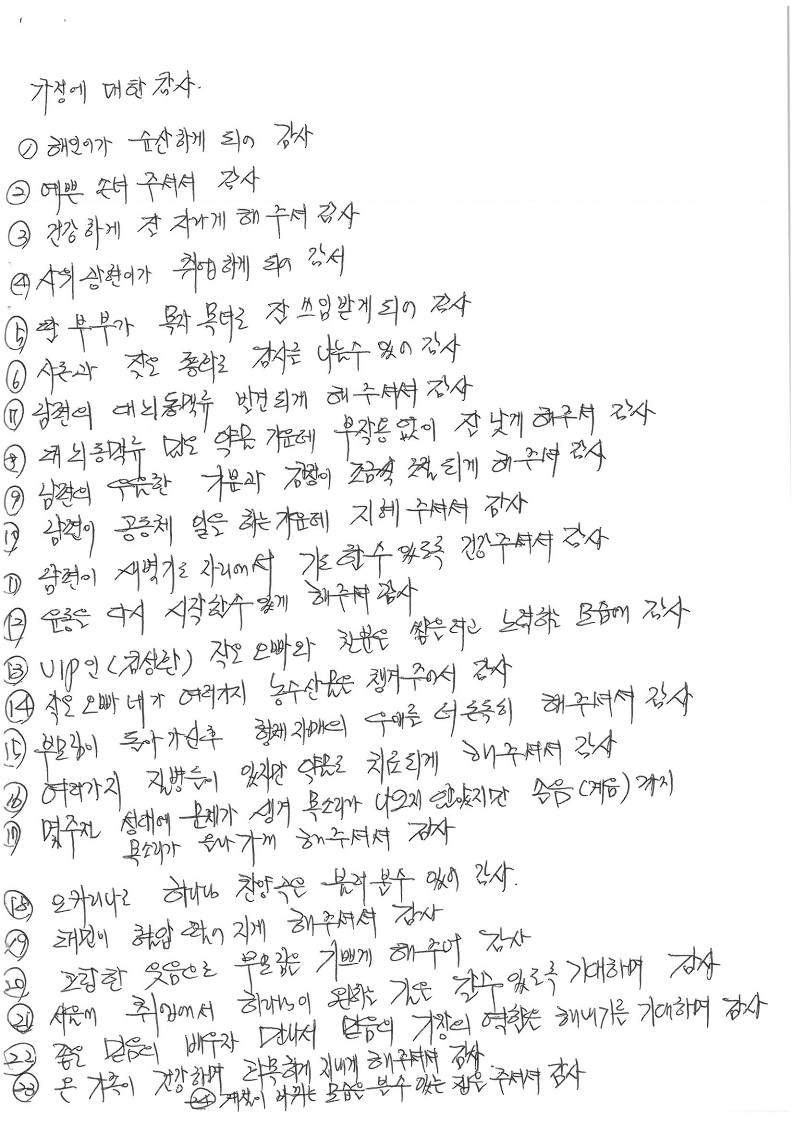 가정에 대한 감사.
① 해인이가 순산하게 되어 감사
② 예쁜 손녀 주셔서 감사
③ 건강하게 잘 자라게 해 주셔 감사
④ 사위 상현이가 취업하게 되어 감사
⑤ 딸 부부가 목자 목녀로 잘 쓰임받게 되어 감사
⑥ 사돈과 잦은 왕래로 감사를 나눌수 있어 감사
⑦ 남편의 대뇌동맥류 발견되게 해 주셔서 감사
⑧ 대뇌동맥류 먹는 약물 가운데 부작용 없이 잘 낫게 해주셔 감사
⑨ 남편의 우울한 기분과 감정이 조금씩 회복 되게 해 주셔 감사
⑩ 남편이 공동체 일을 하는 가운데 지혜 주셔서 감사
⑪ 남편이 새벽기도 자리에서 기도 할 수 있도록 건강주셔서 감사
⑫ 운동을 다시 시작할수 있게 해주셔 감사
⑬ VIP인 (김상란) 작은 오빠와 친분을 쌓을려고 노력하는 모습에 감사
⑭ 작은 오빠 네가 여러가지 농수산물을 챙겨 주어서 감사
⑮ 부모님이 돌아가신후 형제 자매의 우애를 더 돈독히 해 주셔서 감사
⑯ 여러가지 질병들이 있지만 약물로 치료되게 해주셔서 감사
⑰ 몇주전 성대에 문제가 생겨 목소리가 나오지 않았지만 솔음(계음) 까지
목소리가 올라가게 해주셔서 감사
⑱ 오카리나로 하나님 찬양곡을 불러 볼수 있어 감사.
⑲ 태민이 혈압 좋아 지게 해주셔서 감사
⑳ 호탕한 웃음으로 부모님을 기쁘게 해주어 감사
㉑ 서울에 취업해서 하나님이 원하는 길을 갈수 있도록 기대하며 감사
㉒ 좋은 믿음의 배우자 만나서 믿음의 가장의 역할을 해내기를 기대하며 감사
㉓ 온 가족이 건강하며 화목하게 지내게 해주셔서 감사
㉔ 계절이 바뀌는 모습을 볼수 있는 집을 주셔서 감사